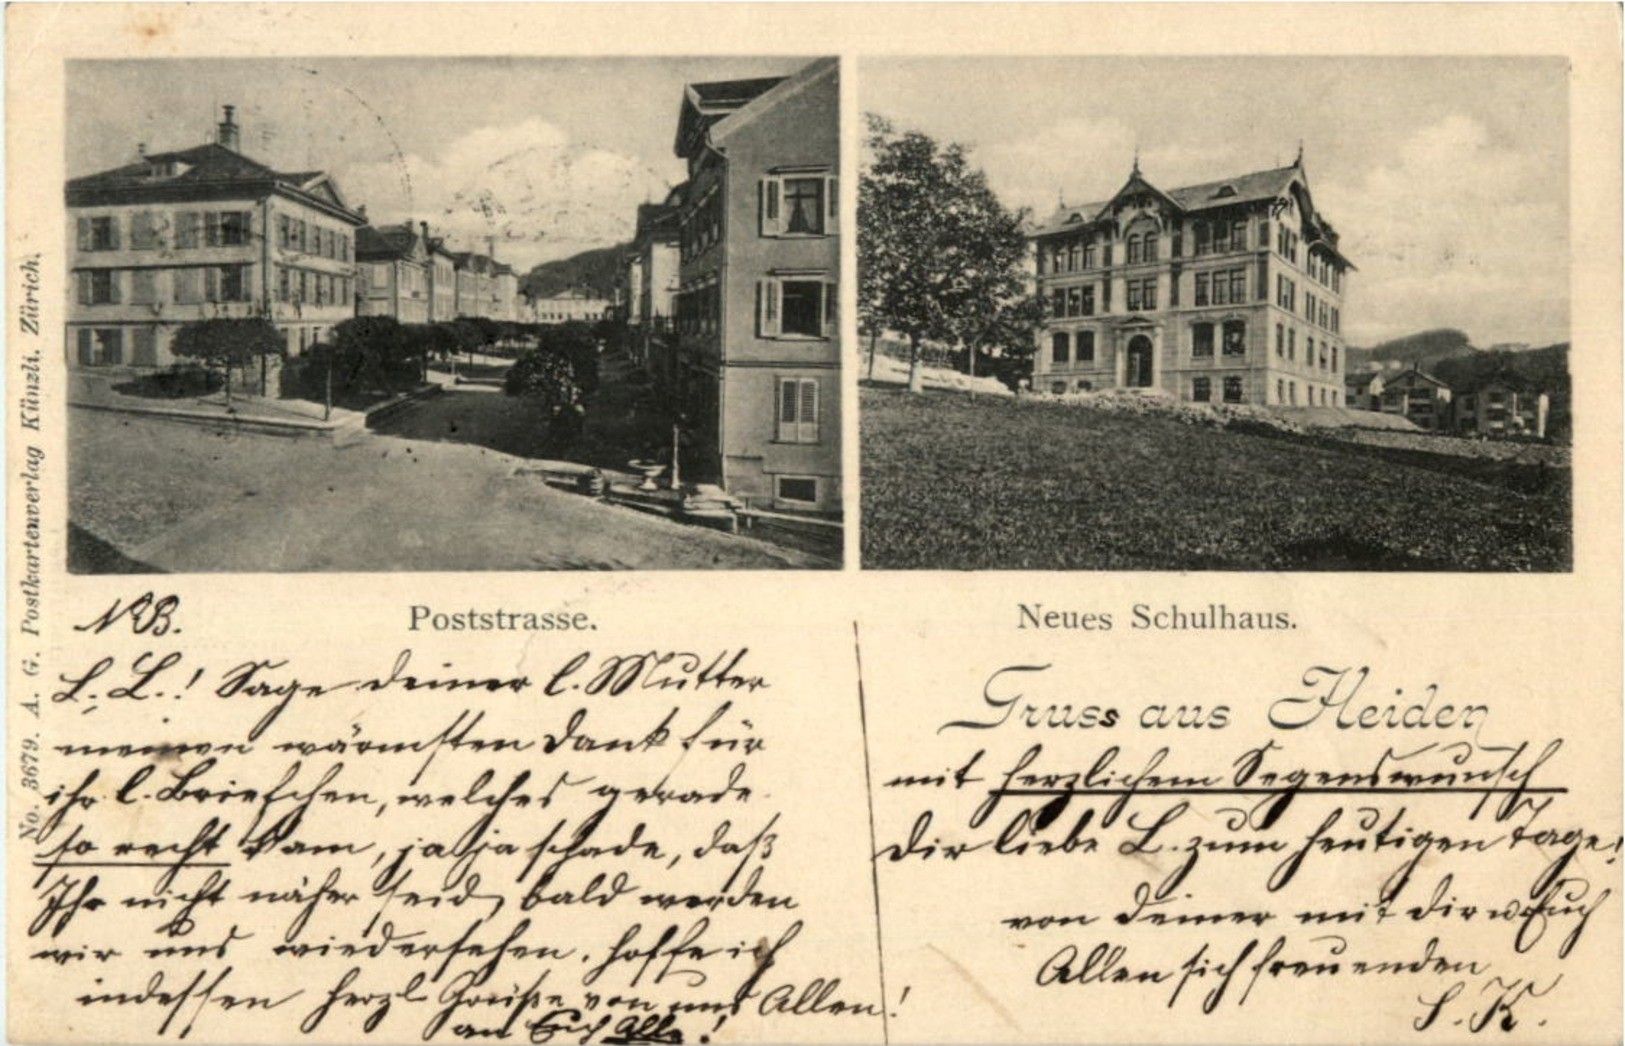 No. 3679. A. G. Postkartenverlag Künzli. Zürich.
Poststrasse.
Neues Schulhaus.
NB.
L. L.! Sage deiner l. Mutter
meinen wärmsten Dank für
ihr l. Briefchen, welches gerade
so recht kam, ja ja schade, daß
Ihr nicht näher seid, bald werden
wir uns wiedersehen, hoffe ich
indessen herzl Grüße von uns Allen!
an Euch Alle!
Gruss aus Heiden
mit herzlichem Segenswunsch
Dir liebe L. zum heutigen Tage!
von deiner mit dir u Euch
Allen sich freuenden
S. K.